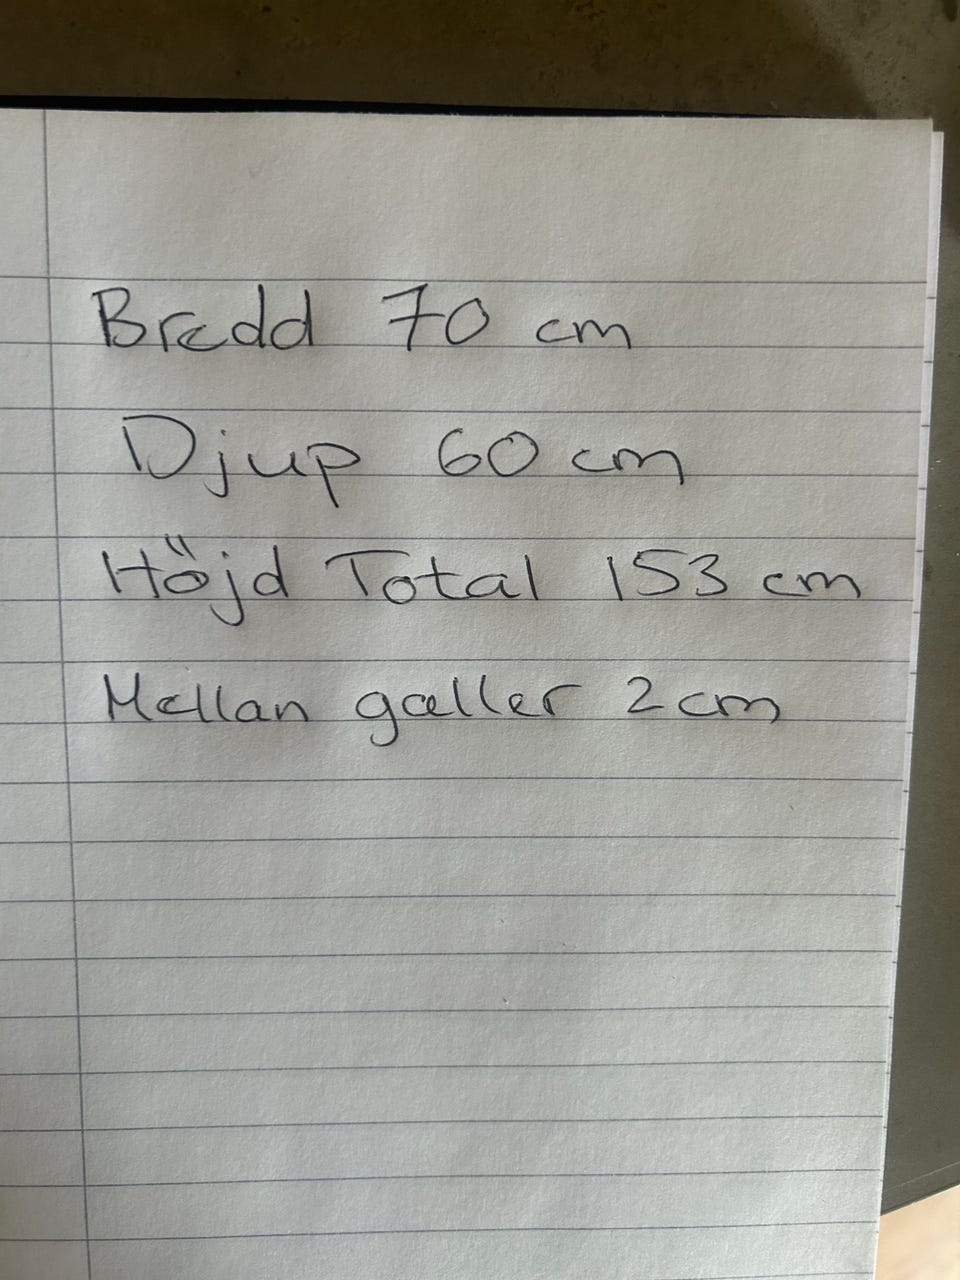 Bredd 70 cm
Djup 60 cm
Höjd Total 153 cm
Mellan galler 2 cm